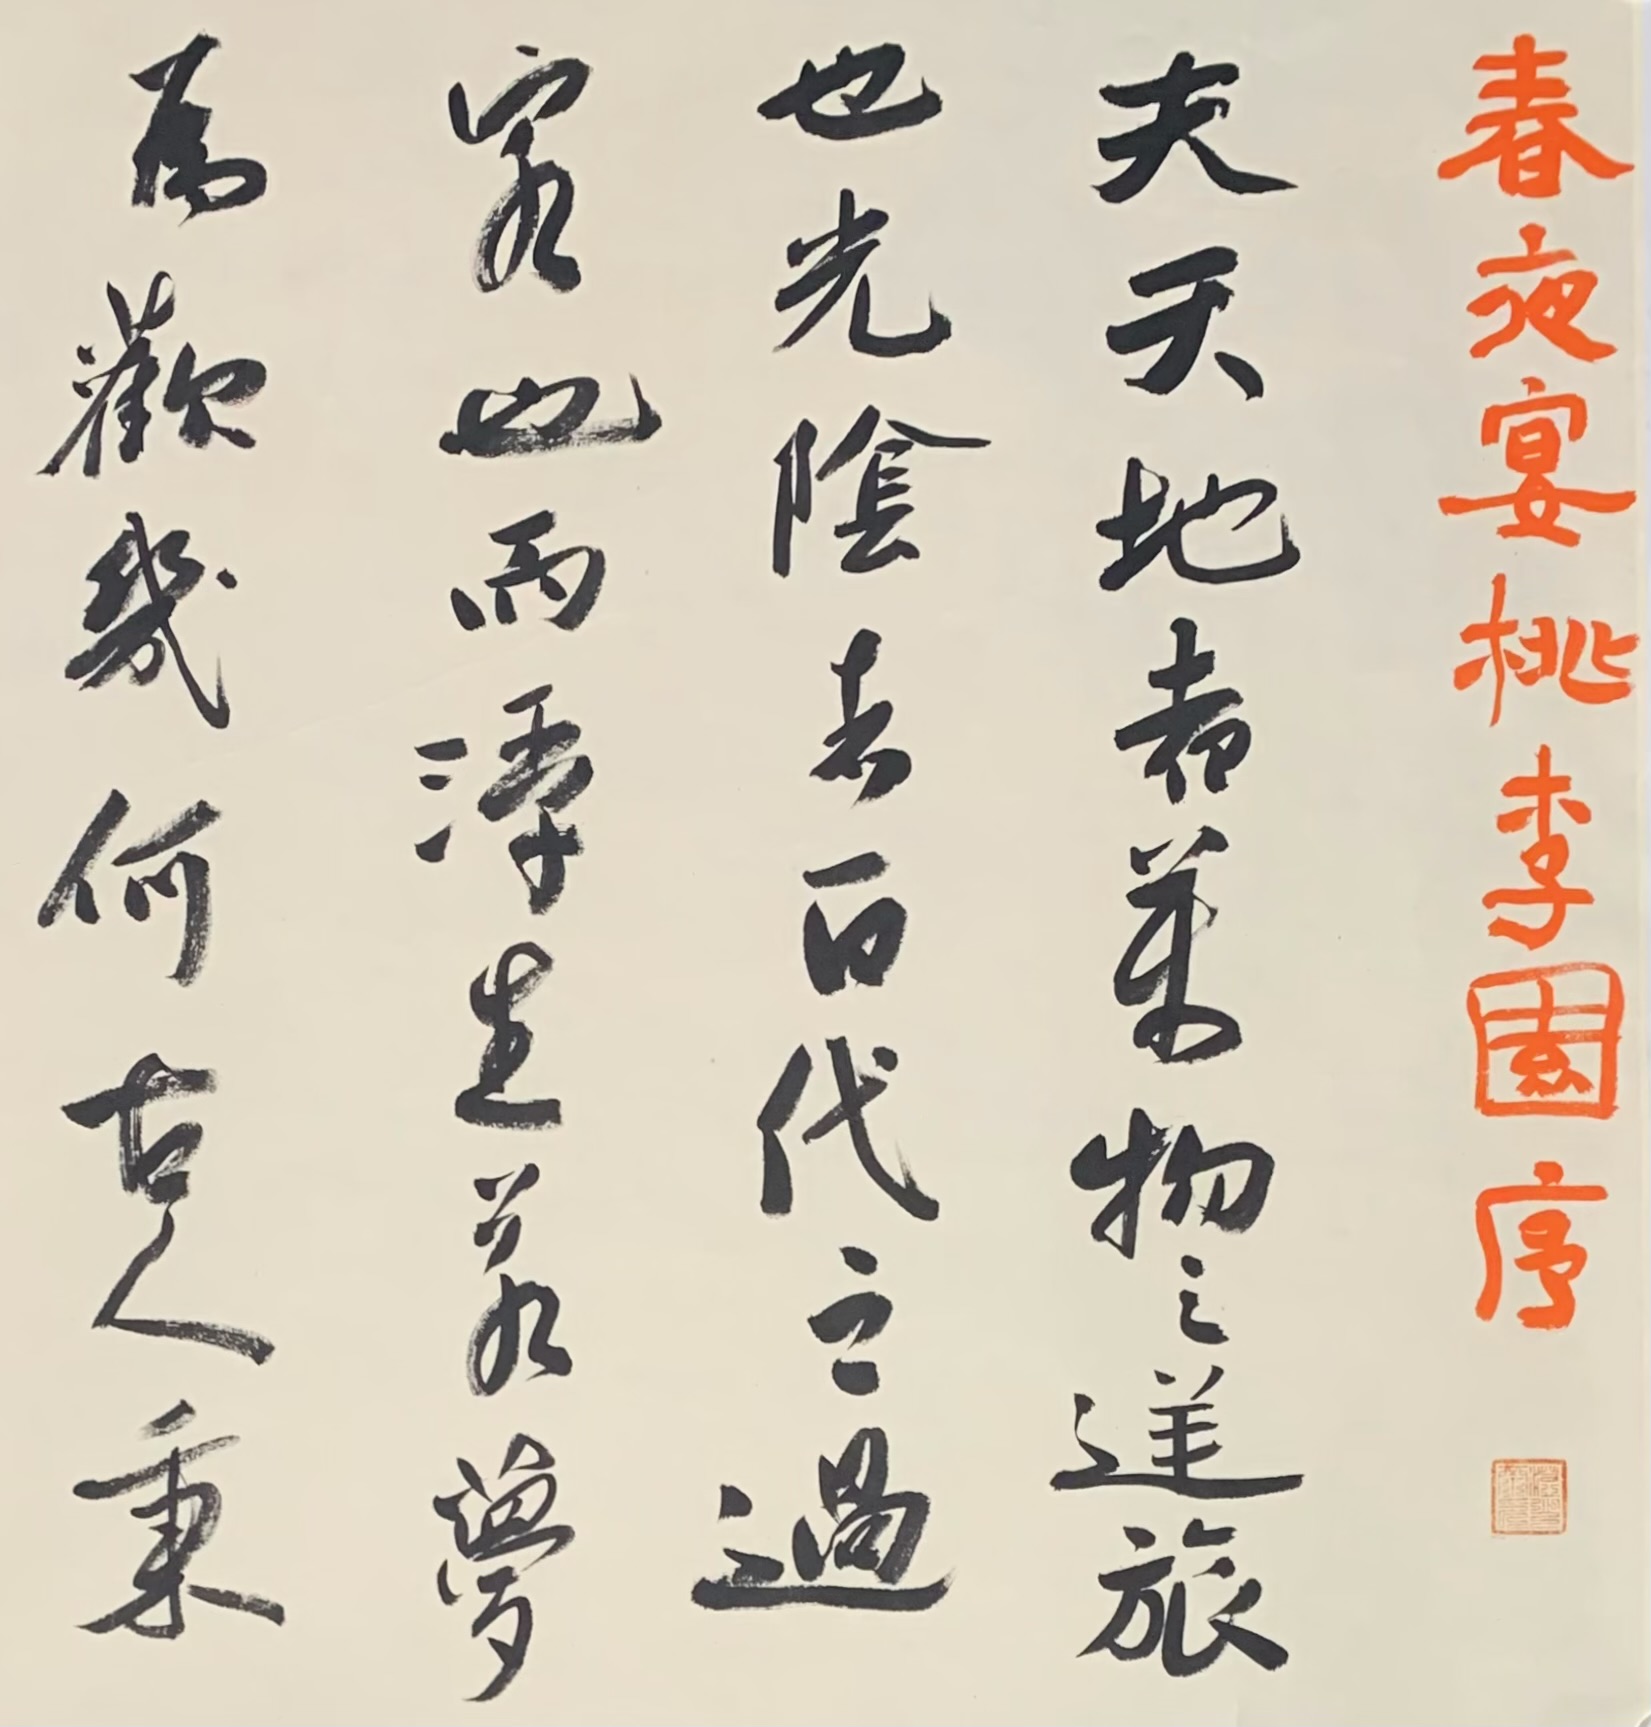 春夜宴桃李園序
夫天地者萬物之逆旅
也光陰者百代之過
客也而浮生若夢
為歡幾何古人秉